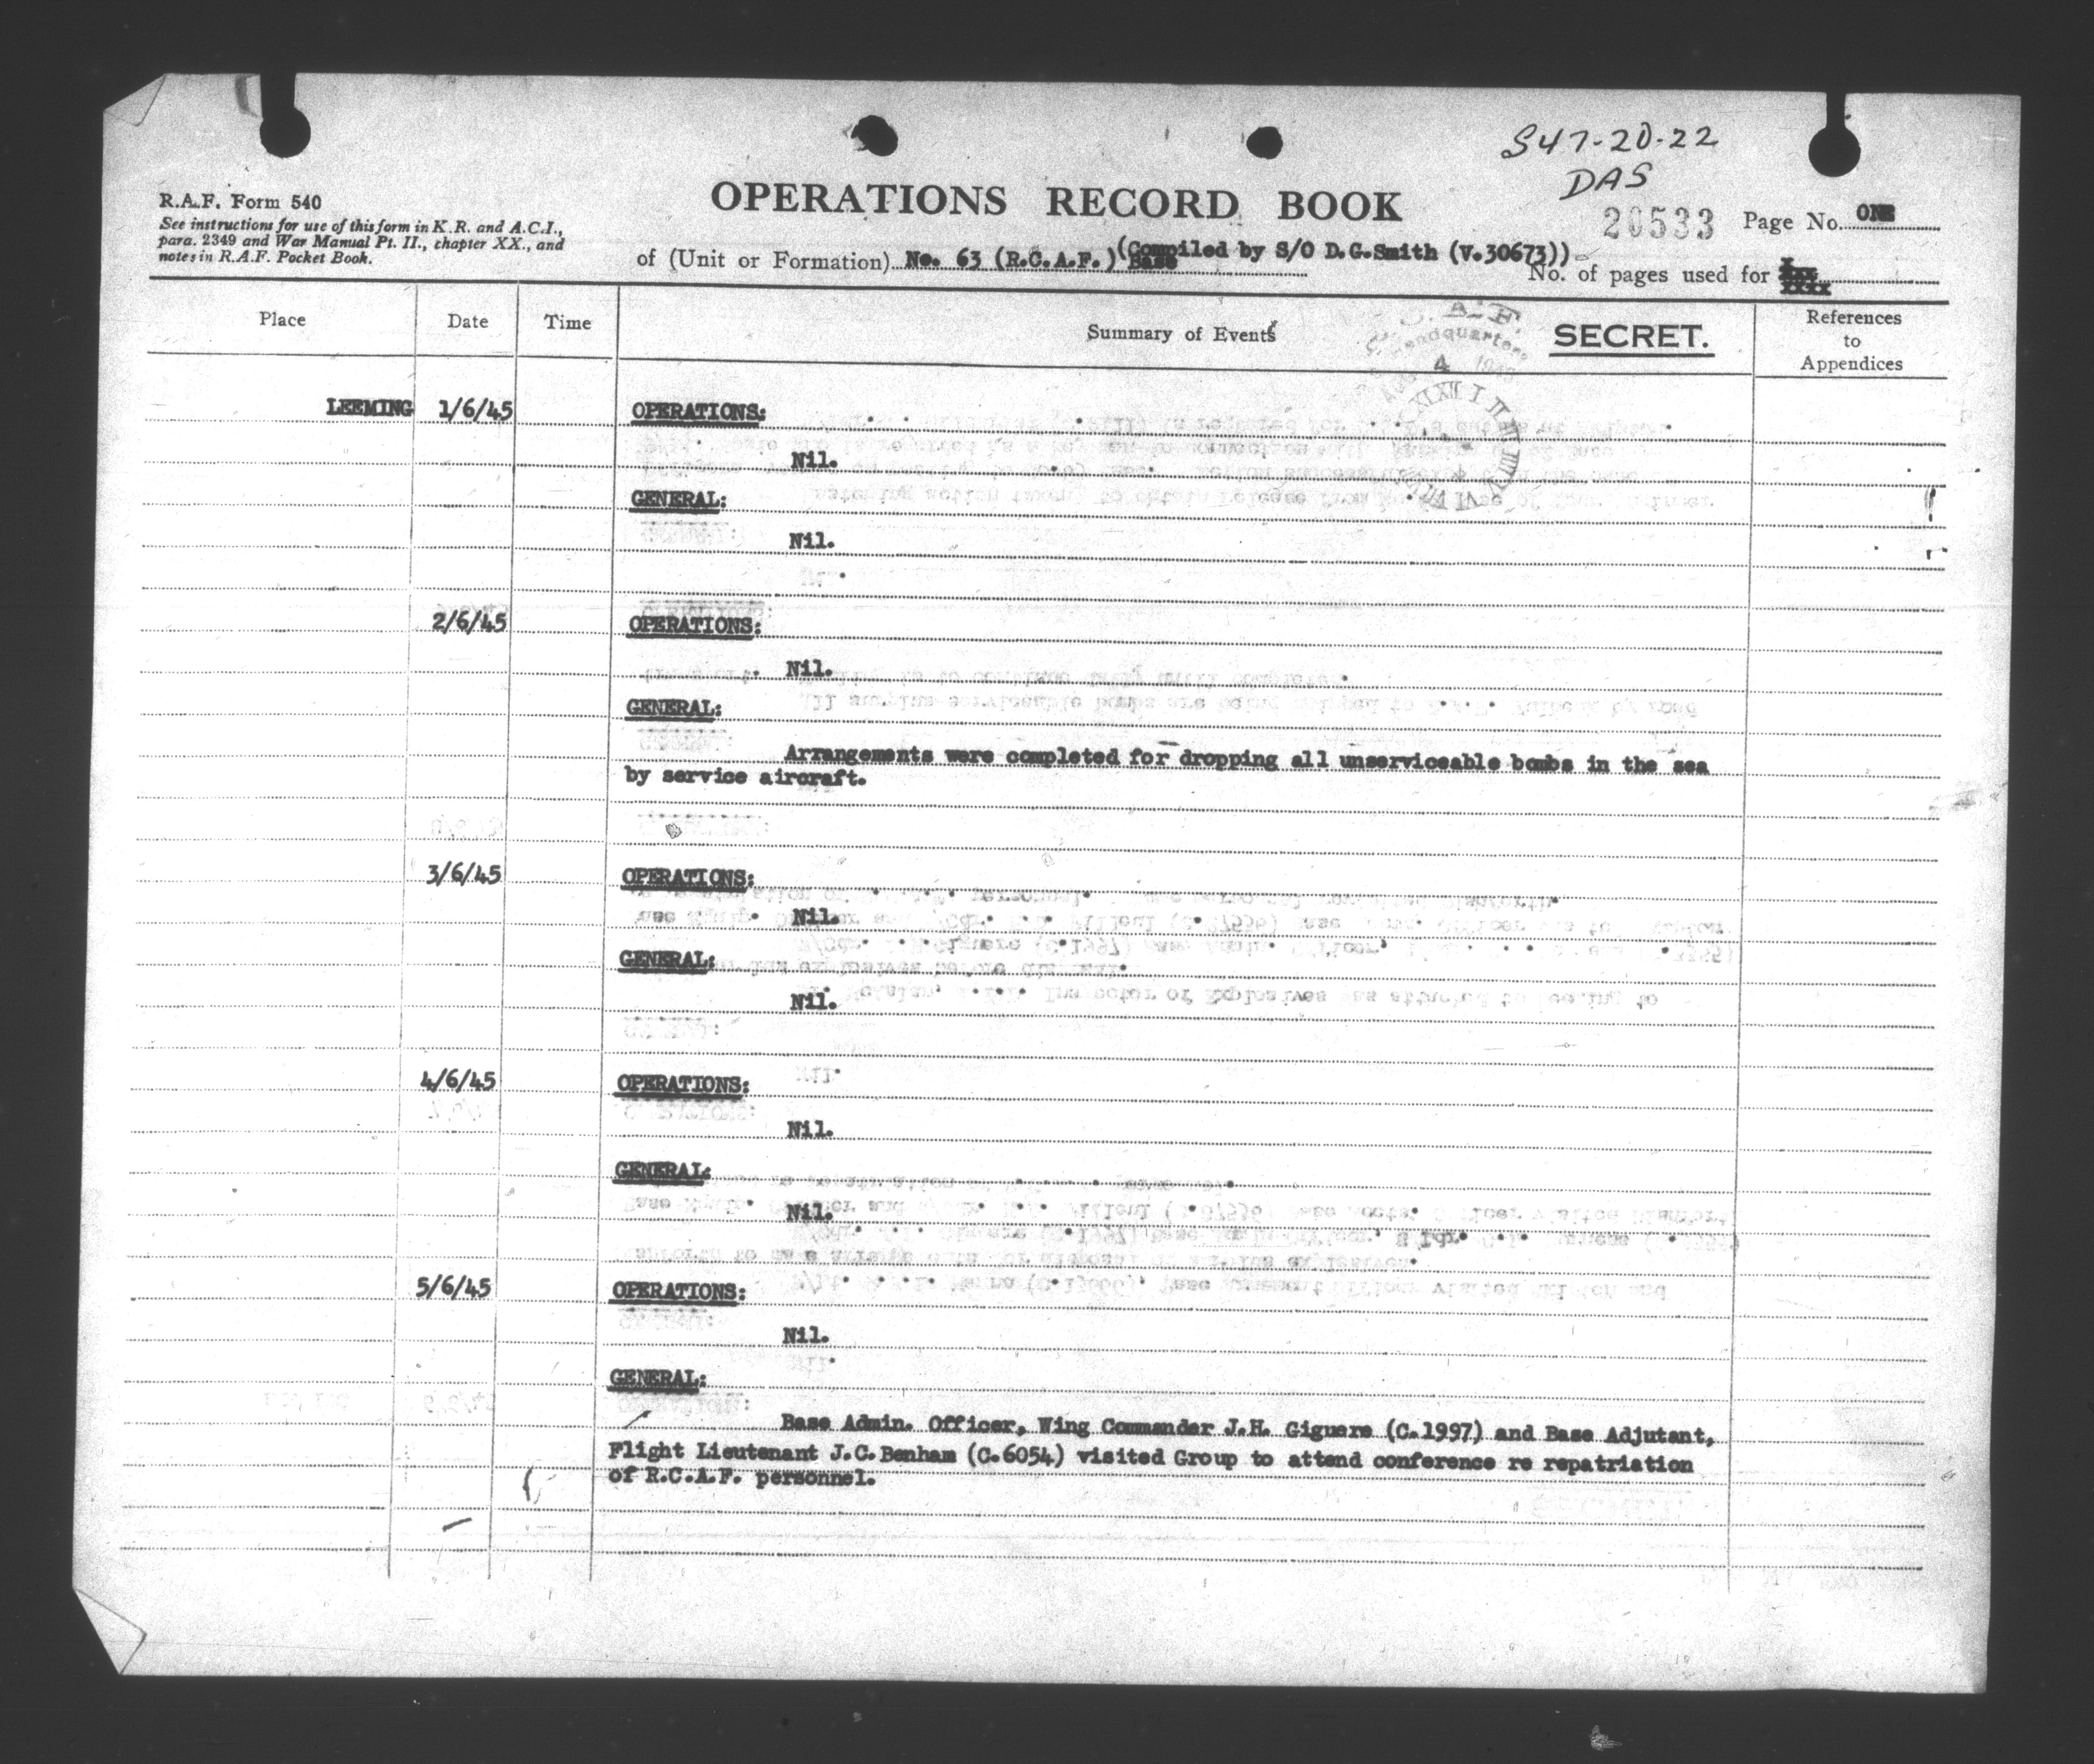 S47-20-22
DAS
R.A.F. Form 540
See instructions for use of this form in K.R. and A.C.I.,
para. 2349 and War Manual Pt. II., chapter XX., and
notes in R.A.F. Pocket Book.
OPERATIONS RECORD BOOK
20533 Page No. ONE
of (Unit or Formation) No. 63 (R.C.A.F.) Base (Compiled by S/O D.G.Smith (V.30673))
No. of pages used for
Place Date Time Summary of Events SECRET. References
to
Appendices
LEEMING 1/6/45 OPERATIONS:
Nil.
GENERAL:
Nil.
2/6/45 OPERATIONS:
Nil.
GENERAL:
Arrangements were completed for dropping all unserviceable bombs in the sea
by service aircraft.
3/6/45 OPERATIONS:
Nil.
GENERAL:
Nil.
4/6/45 OPERATIONS:
Nil.
GENERAL:
Nil.
5/6/45 OPERATIONS:
Nil.
GENERAL:
Base Admin. Officer, Wing Commander J.H. Giguere (C.1997) and Base Adjutant,
Flight Lieutenant J.C.Benham (C.6054) visited Group to attend conference re repatriation
of R.C.A.F. personnel.